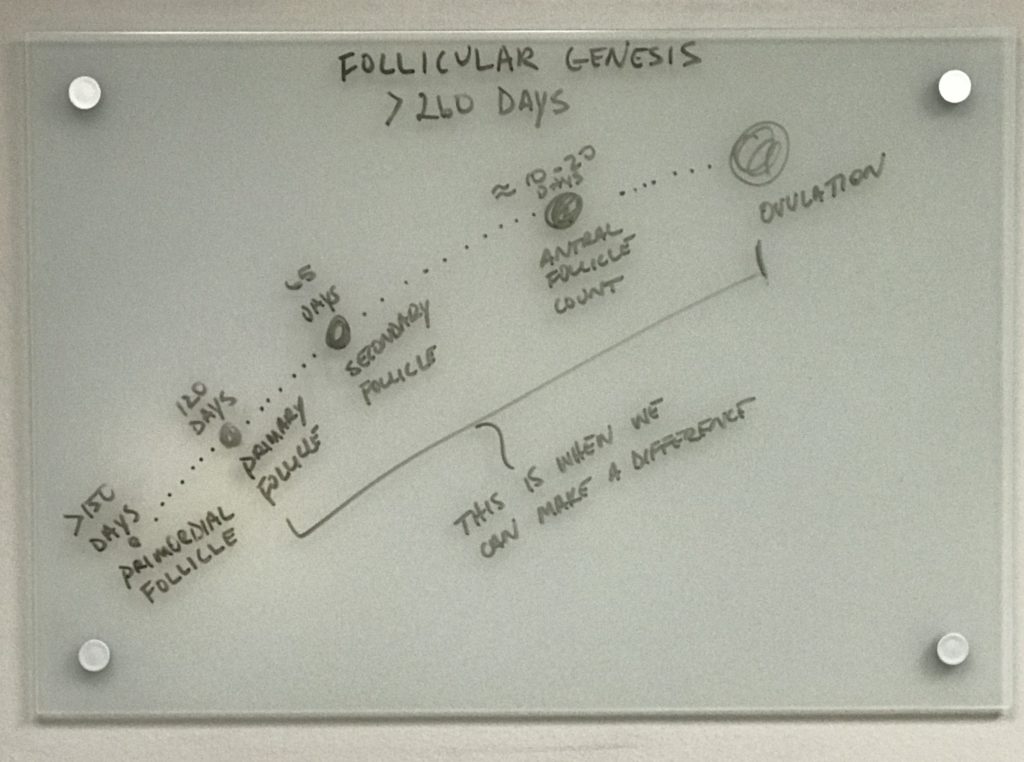 FOLLICULAR GENESIS
>260 DAYS
>150
DAYS
PRIMORDIAL
FOLLICLE
120
DAYS
PRIMARY
FOLLICLE
DAYS
SECONDARY
FOLLICLE
≈ 10-20
DAYS
ANTRAL
FOLLICLE
COUNT
OVULATION
THIS IS WHEN WE
CAN MAKE A DIFFERENCE